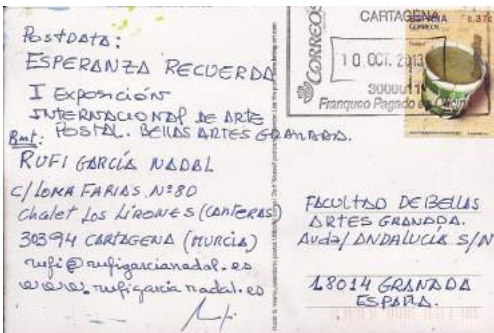 Postdata:
ESPERANZA RECUERDA
I Exposición
INTERNACIONAL DE ARTE
POSTAL. BELLAS ARTES GRANADA.
Rmt:
RUFI GARCÍA NADAL
C/LOMA FARIAS. Nº 80
Chalet Los Lirones (CANTERAS)
30394 CARTAGENA (MURCIA)
rufi@rufigarcianadal.es
www.rufigarcianadal.es
CORREOS
CARTAGENA
10 OCT. 2013
Franqueo Pagado en
ESPAÑA
CORREOS
0,37€
FACULTAD DE BELLAS
ARTES GRANADA.
Avda/ ANDALUCÍA S/N
18014 GRANADA
ESPAÑA.